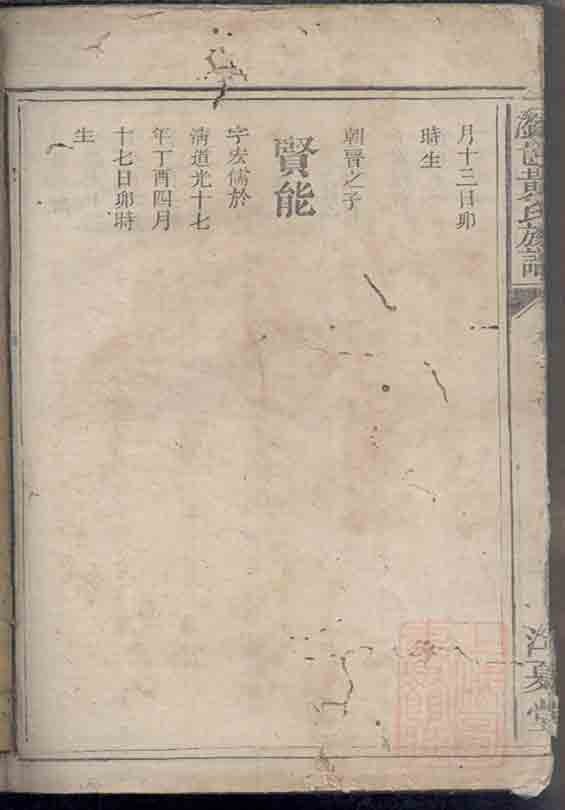 月十三日卯
時生
朝晋之子
賢能
字宏儒於
淸道光十七
年丁酉四月
十七日卯時
生
黃氏族譜
江夏堂